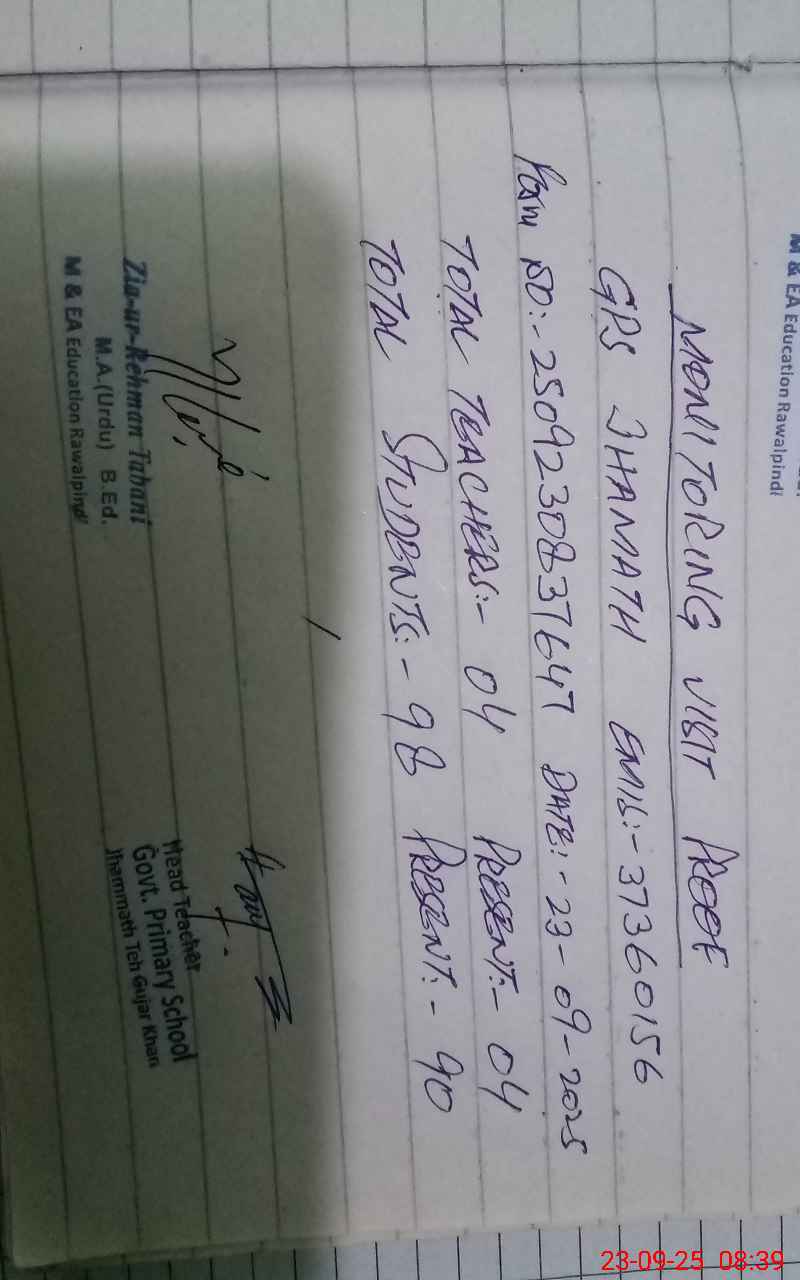 M & EA Education Rawalpindi
MONITORING VISIT PROOF
GPS JHAMATH EMIS:- 37360156
FORM NO:- 2509230837647 DATE:- 23-09-2025
TOTAL TEACHERS:- 04 PRESENT:- 04
TOTAL STUDENTS:- 98 PRESENT:- 90
Zia-ur-Rehman Tabani
M.A.(Urdu) B.Ed.
M & EA Education Rawalpindi
Head Teacher
Govt. Primary School
Jhammath Teh Gujar Khan
23-09-25 08:39